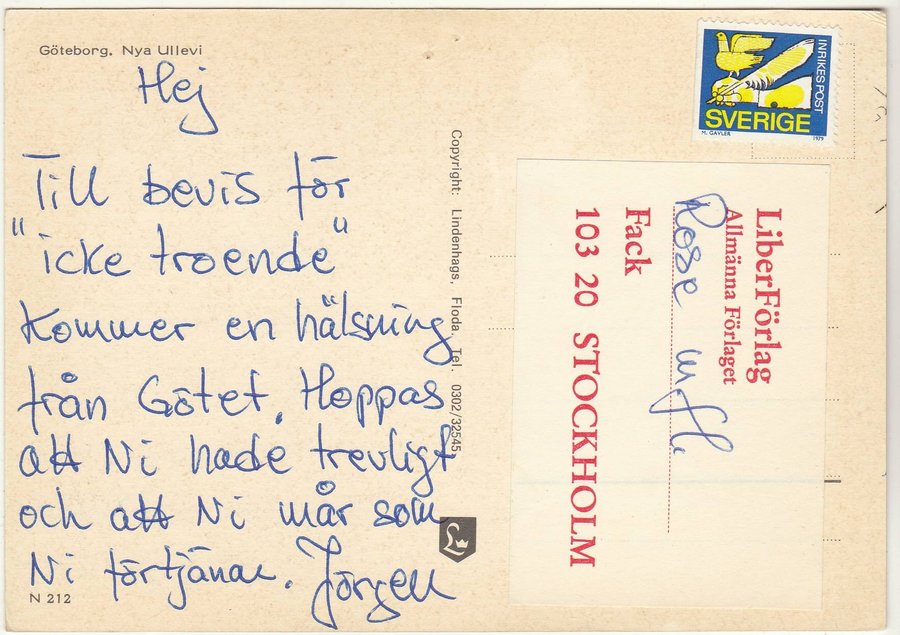 Göteborg. Nya Ullevi
Hej
Till bevis för
"icke troende"
kommer en hälsning
från Götet. Hoppas
att Ni hade trevligt
och att Ni mår som
Ni förtjänar. Jörgen
N 212
Copyright: Lindenhags, Floda. Tel. 0302/32545
L
INRIKES POST
SVERIGE
M. GAVLER 1979
LiberFörlag
Allmänna Förlaget
Rose m fl.
Fack
103 20 STOCKHOLM